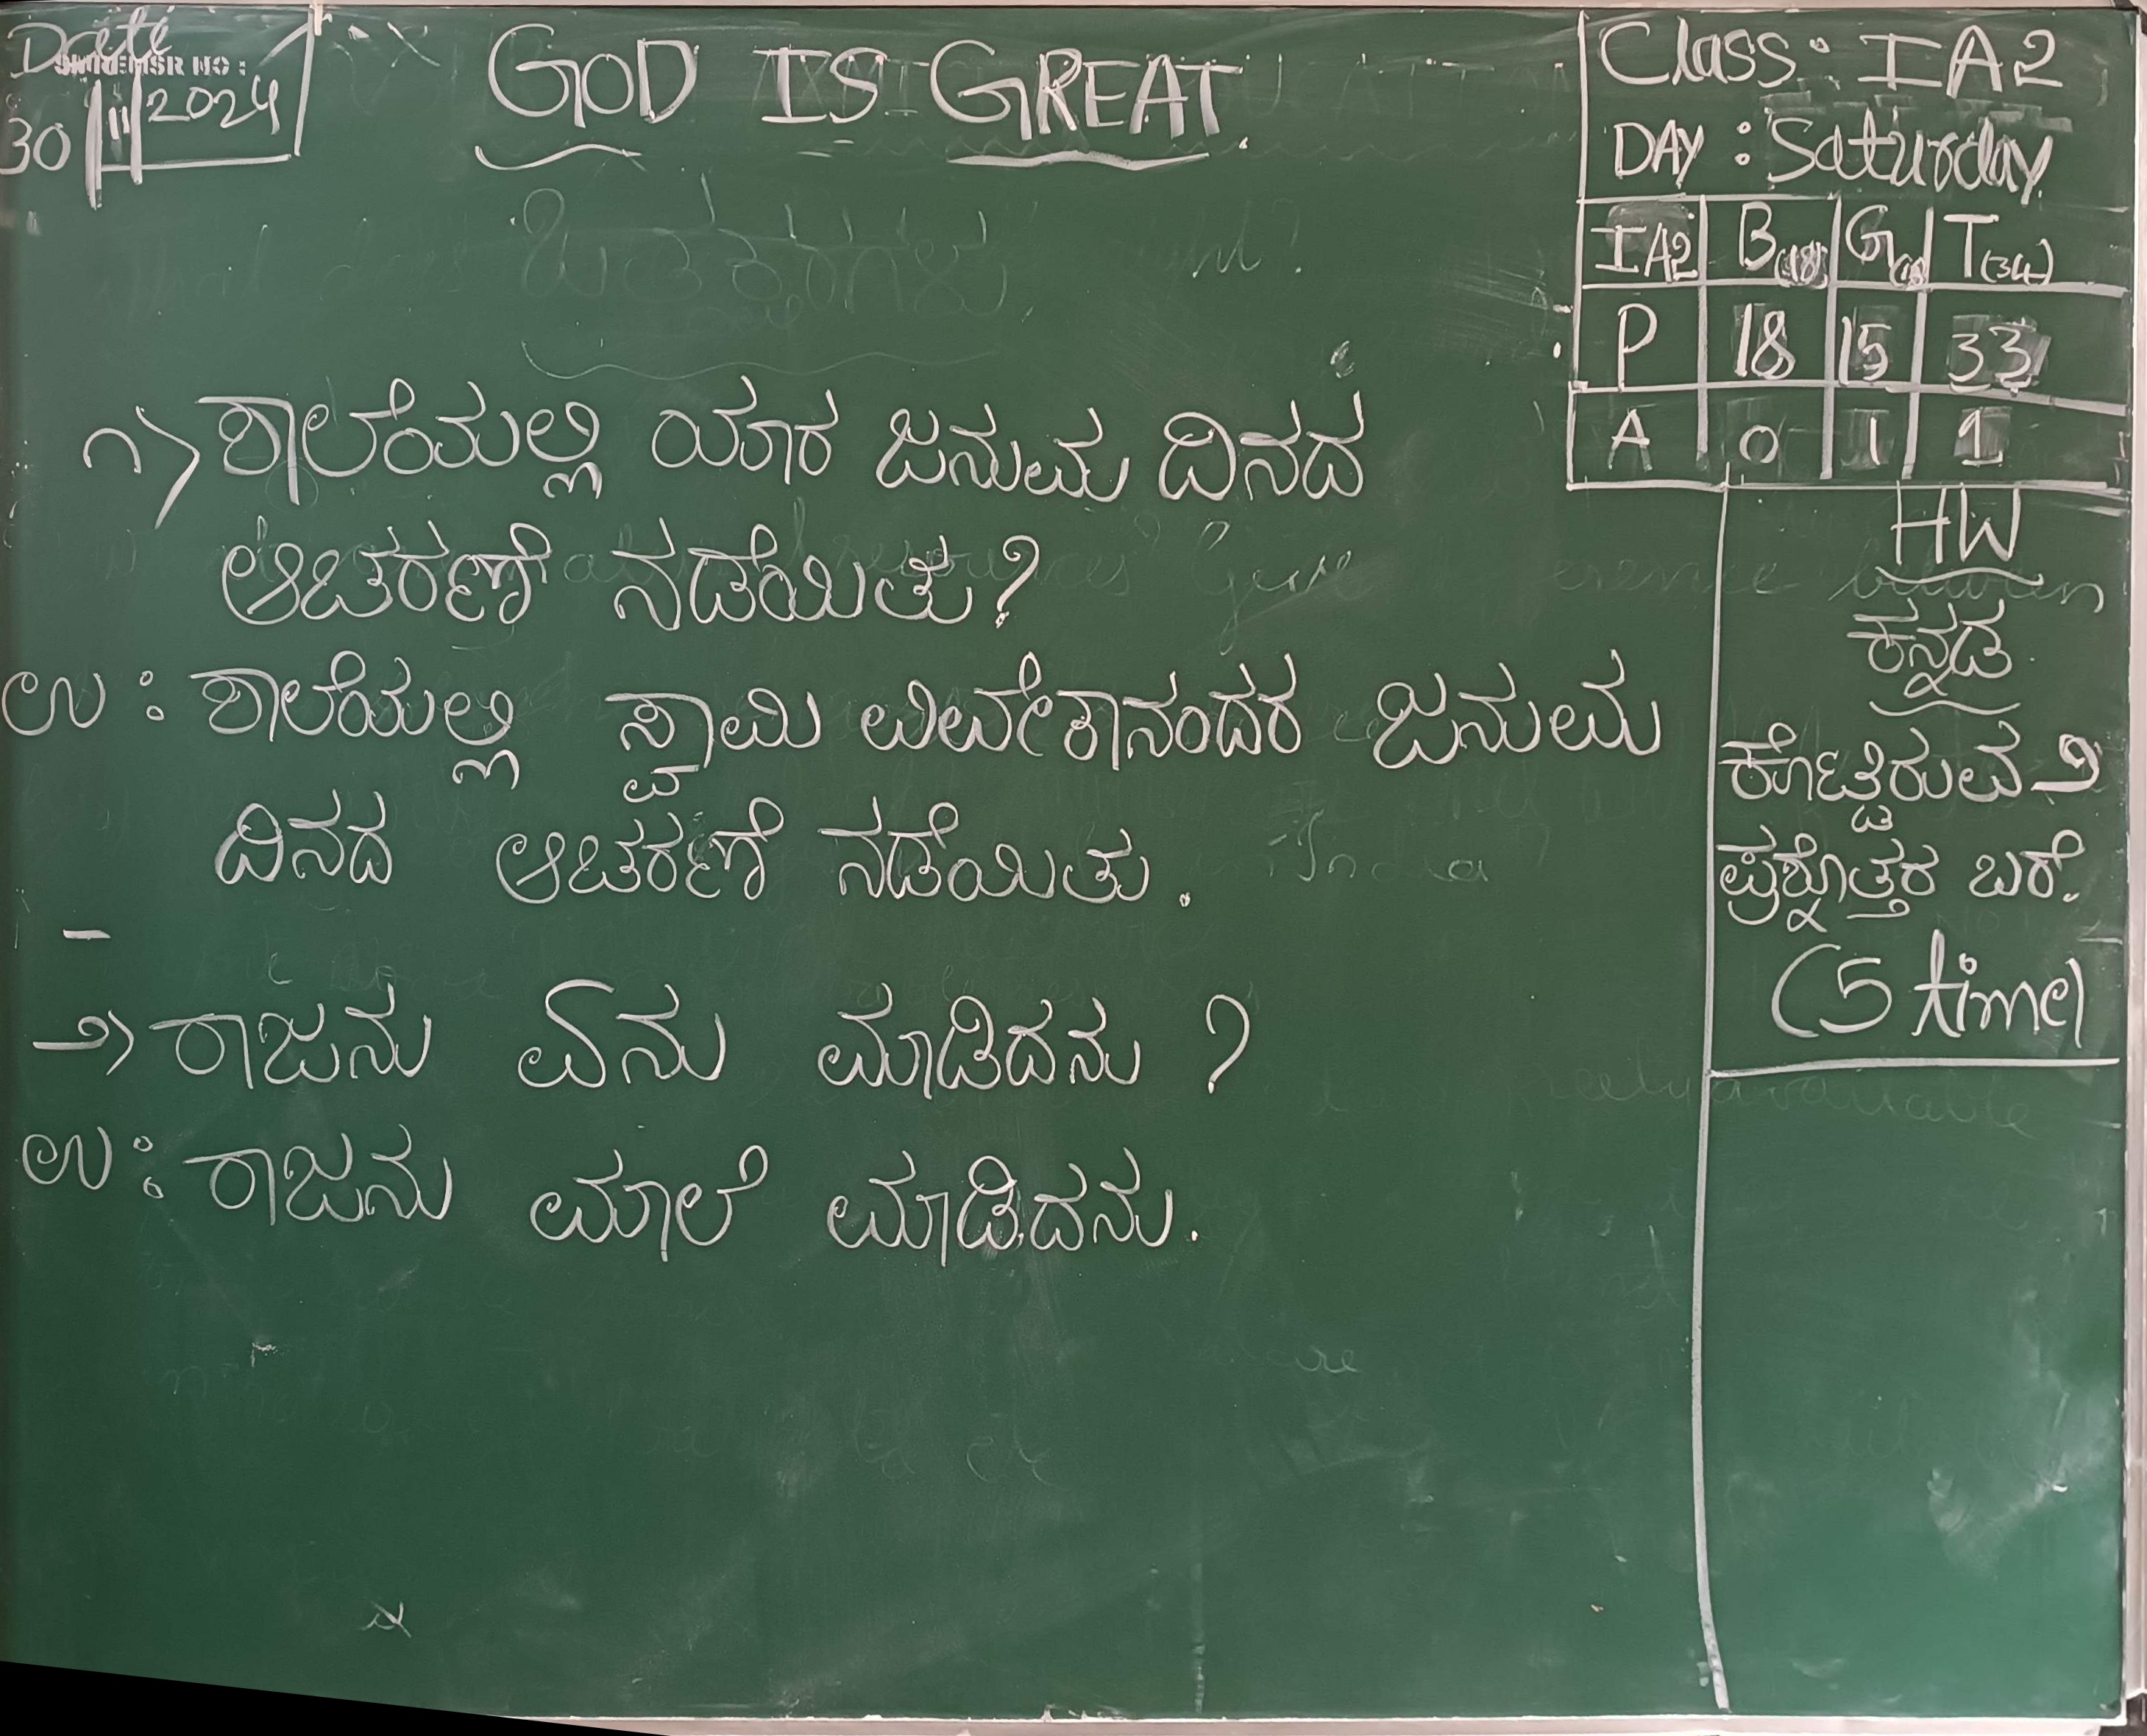 Date
30/11/2024
GOD IS GREAT.
Class: I A2
DAY : Saturday
IA2 B(18) G(16) T(34)
P 18 15 33
A 0 1 1
೧) ಶಾಲೆಯಲ್ಲಿ ಯಾರ ಜನುಮ ದಿನದ
ಆಚರಣೆ ನಡೆಯಿತು?
ಉ : ಶಾಲೆಯಲ್ಲಿ ಸ್ವಾಮಿ ವಿವೇಕಾನಂದರ ಜನುಮ
ದಿನದ ಆಚರಣೆ ನಡೆಯಿತು.
೨) ರಾಜನು ಏನು ಮಾಡಿದನು ?
ಉ : ರಾಜನು ಮಾಲೆ ಮಾಡಿದನು.
HW
ಕನ್ನಡ
ಕೊಟ್ಟಿರುವ ೨
ಪ್ರಶ್ನೋತ್ತರ ಬರೆ.
(5 time)